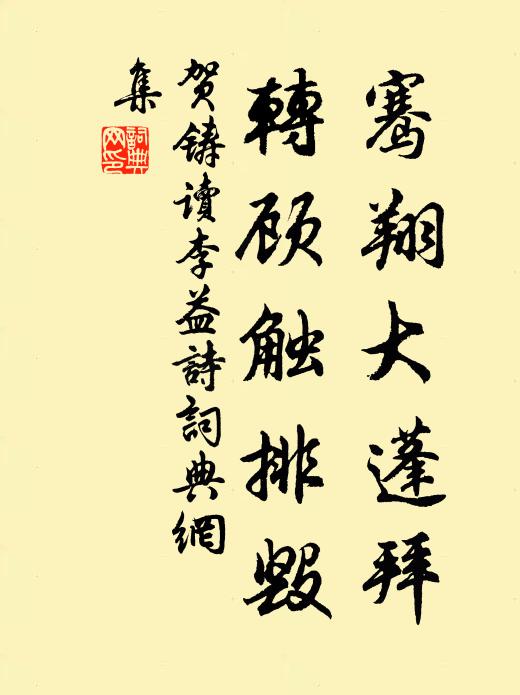 骞翔大蓬拜
轉顾触排毁
贺鑄读李益詩詞典網
集
詞典
网印